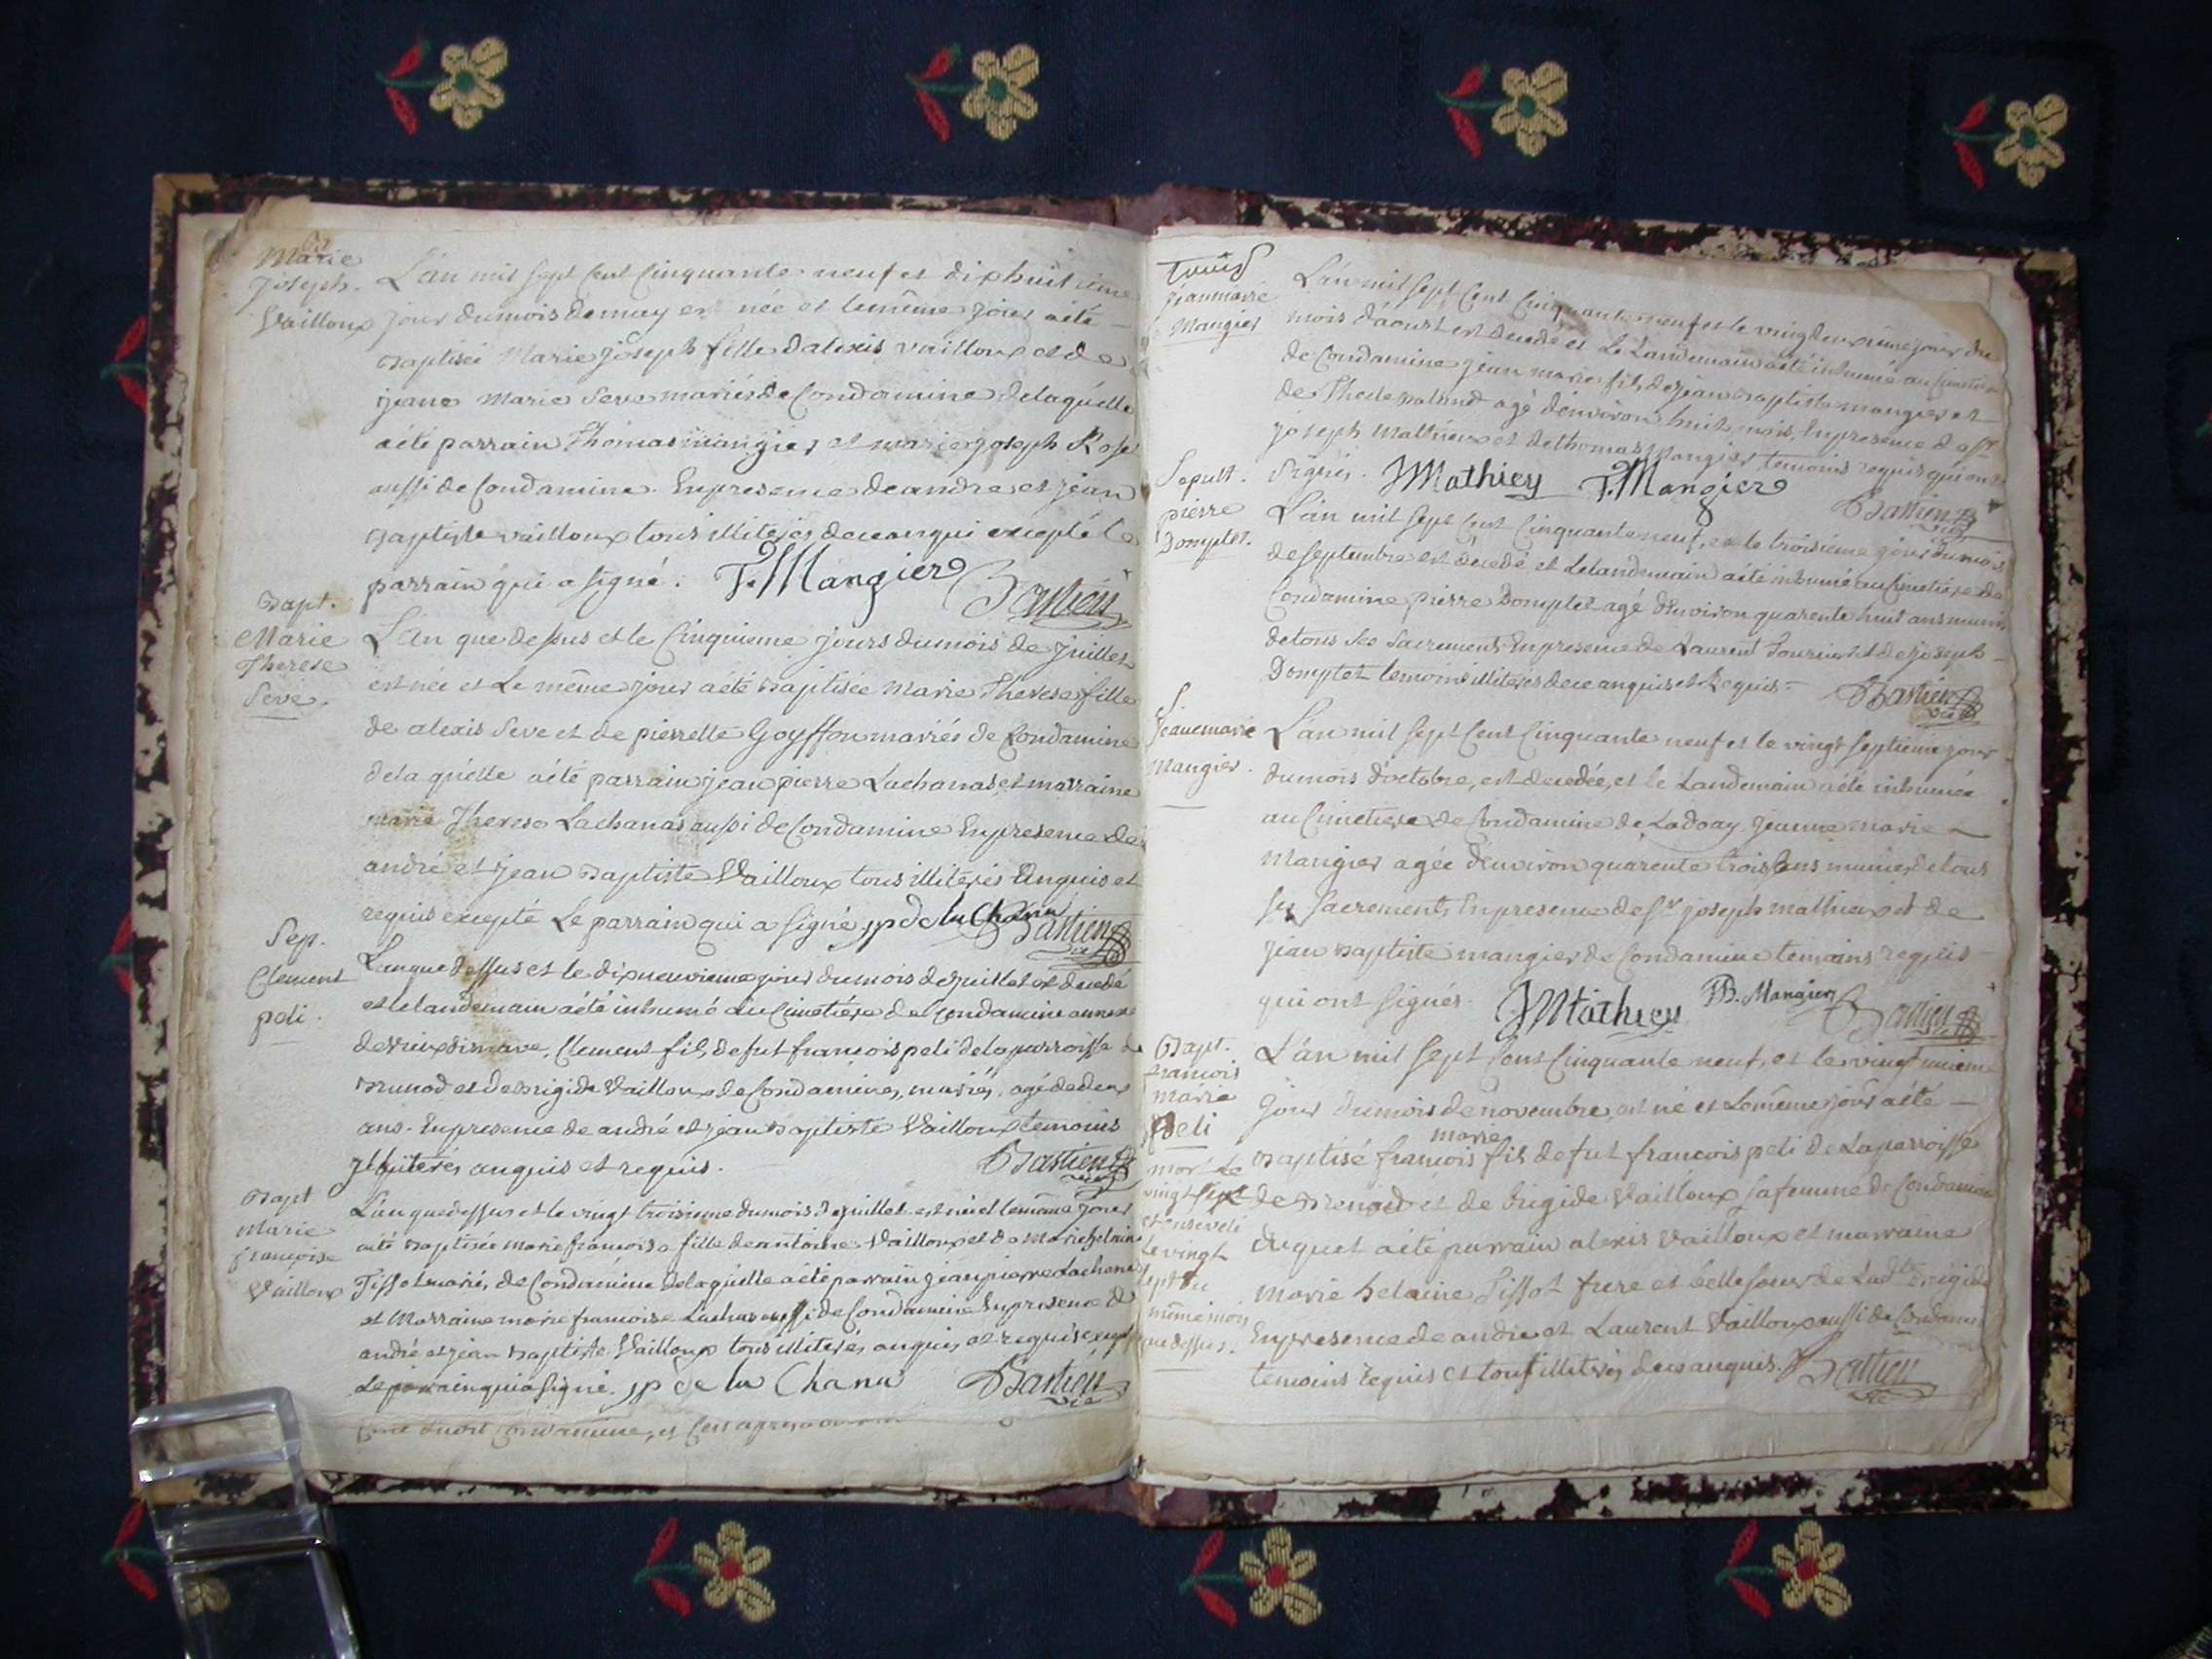 Marie
Joseph.
Vailloux
L'an mil sept cent cinquante neuf et dixhuitieme
jour du mois de may est née et le même jour a été
baptisée Marie joseph fille d'alexis vailloux et de
jeane Marie Seve mariés de Condamine de laquelle
a été parrain Thomas mangier et marie joseph Rose
aussi de Condamine. En presence de andre et jean
baptiste vailloux tous illiterés de ce enquis excepté le
parrain qui a signé. T. Mangier Bastien
Bapt.
Marie
Therese
Seve.
L'an que dessus et le cinquieme jours du mois de juillet
est née et le même jour a été baptisée Marie Therese fille
de alexis Seve et de pierrette Goyffon mariés de Condamine
de la quelle a été parrain jean pierre Lachanas et marraine
marie Therese Lachanas aussi de Condamine En presence de
andré et jean baptiste Vailloux tous illiterés Enquis et
requis excepté Le parrain qui a signé jp de la Chana Bastien
Sep.
Clement
peli.
L'an que dessus et le dixneuvieme jour du mois de juillet est decedé
et le landemain a été inhumé au Cimetière de Condamine annexe
de vieux disnave, Clement fils de fut francois peli de la parroisse de
brenod et de brigide Vailloux de Condamine, mariés, agé de deux
ans. En presence de andré et jean baptiste Vailloux temoins
illiterés enquis et requis. Bastien
Bapt
Marie
françoise
Vailloux
L'an que dessus et le vingt troisieme du mois de juillet est née et le même jour
a été baptisée marie francoise fille de antoine Vailloux et de Marie helaine
Tissot mariés de Condamine de laquelle a été parrain jean pierre Lachana
et Marraine marie francoise Lachanas aussi de Condamine En presence de
andré et jean baptiste Vailloux tous illiterés enquis et requis excepté
Le parrain qui a signé. jp de la Chana Bastien
jeanmarie
Mangier
L'an mil sept cent cinquante neuf et le vingt deuxieme jour du
mois d'aoust est decedé et Le Landemain a été inhumé au Cimetiere
de Condamine jean marie fils de jean baptiste mangier et
de agé d'environ huit mois, En presence de
joseph Mathieux et de thomas Mangier temoins requis qui ont
signés. JMathiey T. Mangier Bastien
Sepult.
pierre
Domptet.
L'an mil sept cent cinquante neuf, et le troisieme jour du mois
de septembre est decedé et Le landemain a été inhumé au Cimetiere de
Condamine pierre Domptet agé d'environ quarente huit ans muni
de tous ses sacrements En presence de Laurent et de joseph
Domptet temoins illiterés de ce enquis et Requis. Bastien
S
Jeanemarie
Mangier.
L'an mil sept cent cinquante neuf et le vingt septieme jour
du mois d'octobre, est decedée, et le Landemain a été inhumée
au Cimetiere de Condamine de Ladoay jeanne marie
Mangier agée d'environ quarente trois ans munie de tous
ses sacrements En presence de Sr joseph mathieux et de
jean baptiste mangier de Condamine temoins requis
qui ont signés. JMathiey JB. Mangier Bastien
Bapt.
francois
marie
peli
mort Le
vingt sept
et enseveli
Le vingt
sept du
même mois
que dessus.
L'an mil sept cent cinquante neuf, et le vingt unieme
jour du mois de novembre est né et Le même jour a été
marie
baptisé francois fils de fut francois peli de La parroisse
de brenod et de brigide Vailloux sa femme de Condamine
duquel a été parrain alexis Vailloux et marraine
marie helaine Tissot frere et belle sour de Ladte brigide
En presence de andre et Laurent Vailloux aussi de Condamine
temoins requis et tous illiterés de ce enquis. Bastien